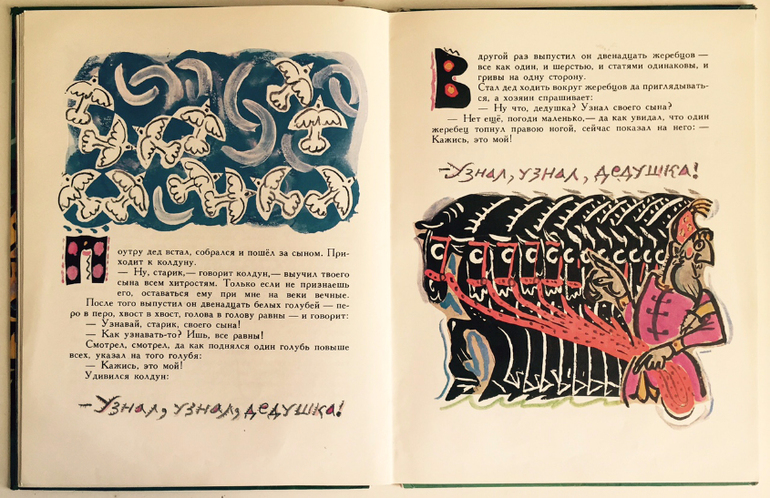 Поутру дед встал, собрался и пошёл за сыном. При-
ходит к колдуну.
— Ну, старик,— говорит колдун,— выучил твоего
сына всем хитростям. Только если не признаешь
его, оставаться ему при мне на веки вечные.
После того выпустил он двенадцать белых голубей — пе-
ро в перо, хвост в хвост, голова в голову равны — и говорит:
— Узнавай, старик, своего сына!
— Как узнавать-то? Ишь, все равны!
Смотрел, смотрел, да как поднялся один голубь повыше
всех, указал на того голубя:
— Кажись, это мой!
Удивился колдун:
—Узнал, узнал, дедушка!
В другой раз выпустил он двенадцать жеребцов —
все как один, и шерстью, и статями одинаковы, и
гривы на одну сторону.
Стал дед ходить вокруг жеребцов да приглядывать-
ся, а хозяин спрашивает:
— Ну что, дедушка? Узнал своего сына?
— Нет ещё, погоди маленько,— да как увидал, что один
жеребец топнул правою ногой, сейчас показал на него: —
Кажись, это мой!
—Узнал, узнал, дедушка!